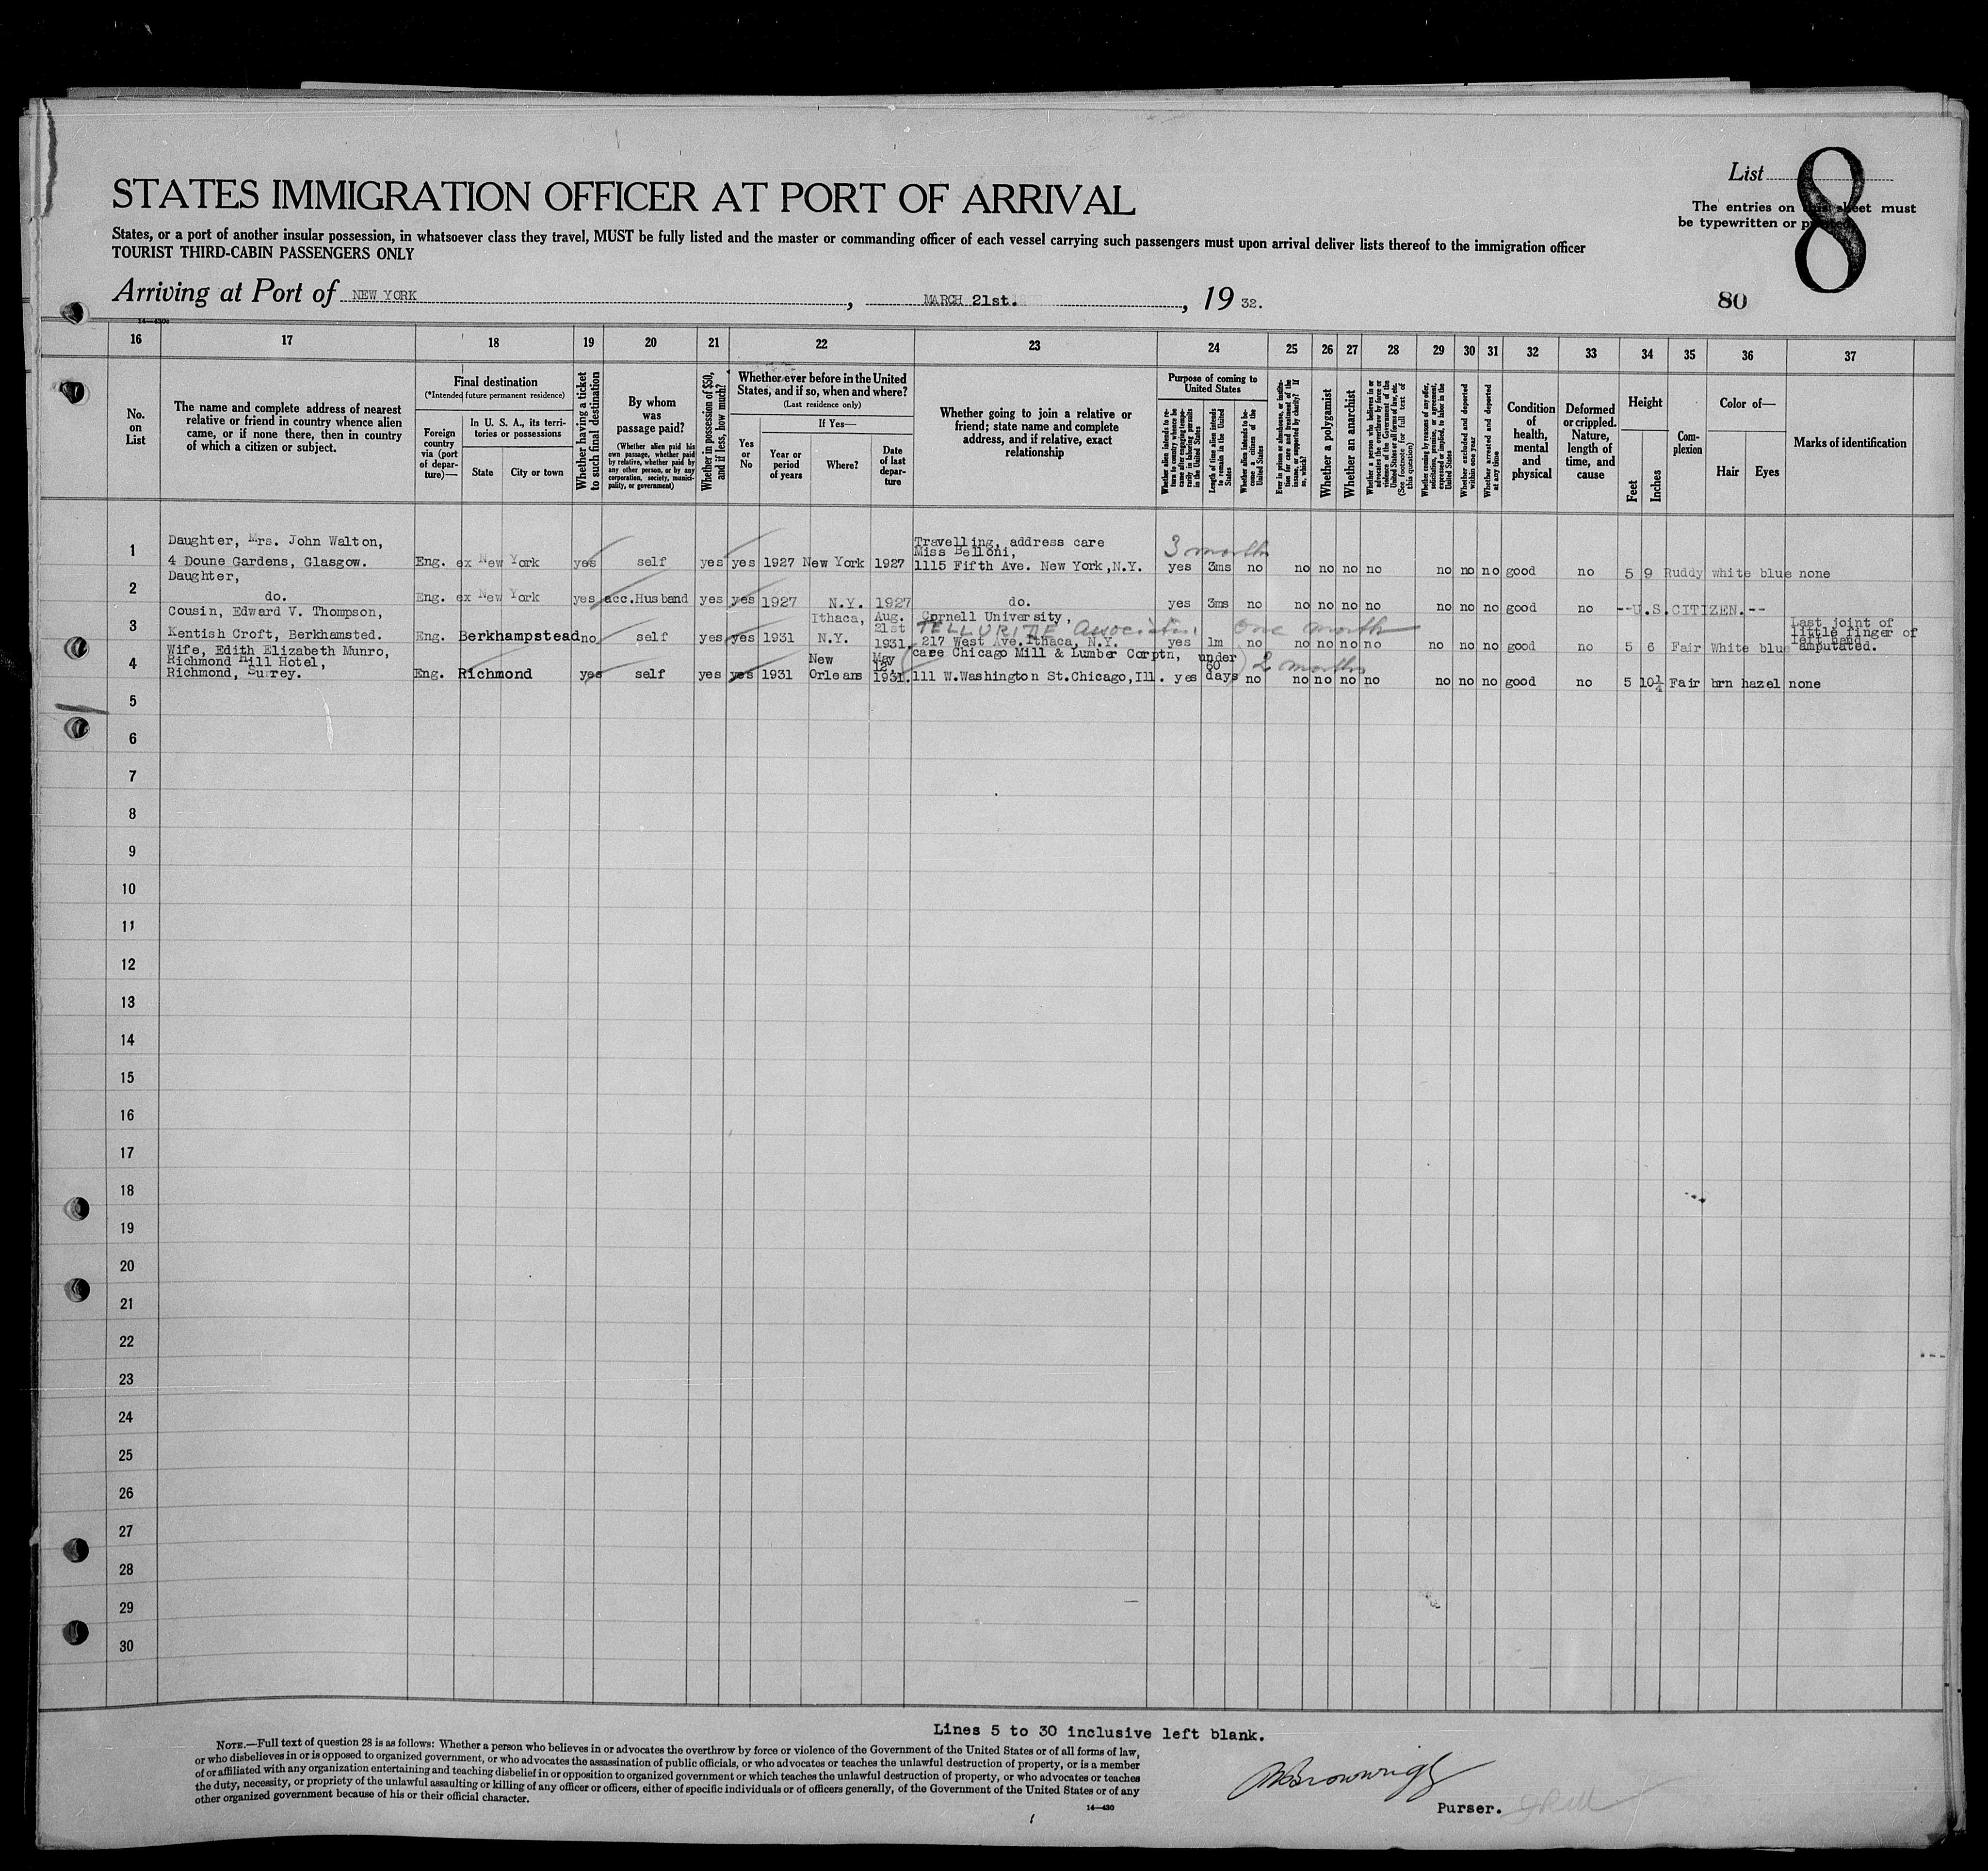 List 8
STATES IMMIGRATION OFFICER AT PORT OF ARRIVAL
The entries on sheet must
be typewritten or
States, or a port of another insular possession, in whatsoever class they travel, MUST be fully listed and the master or commanding officer of each vessel carrying such passengers must upon arrival deliver lists thereof to the immigration officer
TOURIST THIRD-CABIN PASSENGERS ONLY
Arriving at Port of NEW YORK, MARCH 21st., 19 32.
80
16 17 18 19 20 21 22 23 24 25 26 27 28 29 30 31 32 33 34 35 36 37
No. on List
The name and complete address of nearest
relative or friend in country whence alien
came, or if none there, then in country
of which a citizen or subject.
Final destination
(*Intended future permanent residence)
Foreign country via (port of departure)—
In U. S. A., its territories or possessions
State
City or town
Whether having a ticket to such final destination
By whom was passage paid?
(Whether alien paid his own passage, whether paid by relative, whether paid by any other person, or by any corporation, society, municipality, or government)
Whether in possession of $50, and if less, how much?
Whether ever before in the United
States, and if so, when and where?
(Last residence only)
Yes or No
If Yes—
Year or period of years
Where?
Date of last departure
Whether going to join a relative or
friend; state name and complete
address, and if relative, exact
relationship
Purpose of coming to United States
Length of time alien intends to remain in the United States
Whether alien intends to become a citizen of the United States
Whether a polygamist
Whether an anarchist
Whether excluded and deported within one year
Whether arrested and deported at any time
Condition of health, mental and physical
Deformed or crippled. Nature, length of time, and cause
Height
Feet
Inches
Complexion
Color of—
Hair
Eyes
Marks of identification
1 Daughter, Mrs. John Walton,
4 Doune Gardens, Glasgow. Eng. ex New York yes self yes yes 1927 New York 1927
Travelling, address care
Miss Belloni,
1115 Fifth Ave. New York,N.Y. 3 months yes 3ms no no no no no no no no good no 5 9 Ruddy white blue none
2 Daughter,
do. Eng. ex New York yes acc.Husband yes yes 1927 N.Y. 1927 do. yes 3ms no no no no no no no no good no --U.S.CITIZEN.--
3 Cousin, Edward V. Thompson,
Kentish Croft, Berkhamsted. Eng. Berkhampstead no self yes yes 1931 Ithaca, N.Y. Aug. 21st 1931.
Cornell University,
217 West Ave.Ithaca, N.Y. one month yes 1m no no no no no no no no good no 5 6 Fair White blue
Last joint of
little finger of
left hand
amputated.
4 Wife, Edith Elizabeth Munro,
Richmond Hill Hotel,
Richmond, Surrey. Eng. Richmond yes self yes yes 1931 New Orleans May 12, 1931.
care Chicago Mill & Lumber Corptn,
111 W.Washington St.Chicago,Ill. yes under 60 days 2 months no no no no no no no no good no 5 10¼ Fair brn hazel none
5
6
7
8
9
10
11
12
13
14
15
16
17
18
19
20
21
22
23
24
25
26
27
28
29
30
Lines 5 to 30 inclusive left blank.
NOTE.—Full text of question 28 is as follows: Whether a person who believes in or advocates the overthrow by force or violence of the Government of the United States or of all forms of law,
or who disbelieves in or is opposed to organized government, or who advocates the assassination of public officials, or who advocates or teaches the unlawful destruction of property, or is a member
of or affiliated with any organization entertaining and teaching disbelief in or opposition to organized government or which teaches the unlawful destruction of property, or who advocates or teaches
the duty, necessity, or propriety of the unlawful assaulting or killing of any officer or officers, either of specific individuals or of officers generally, of the Government of the United States or of any
other organized government because of his or their official character.
14—430
Purser.